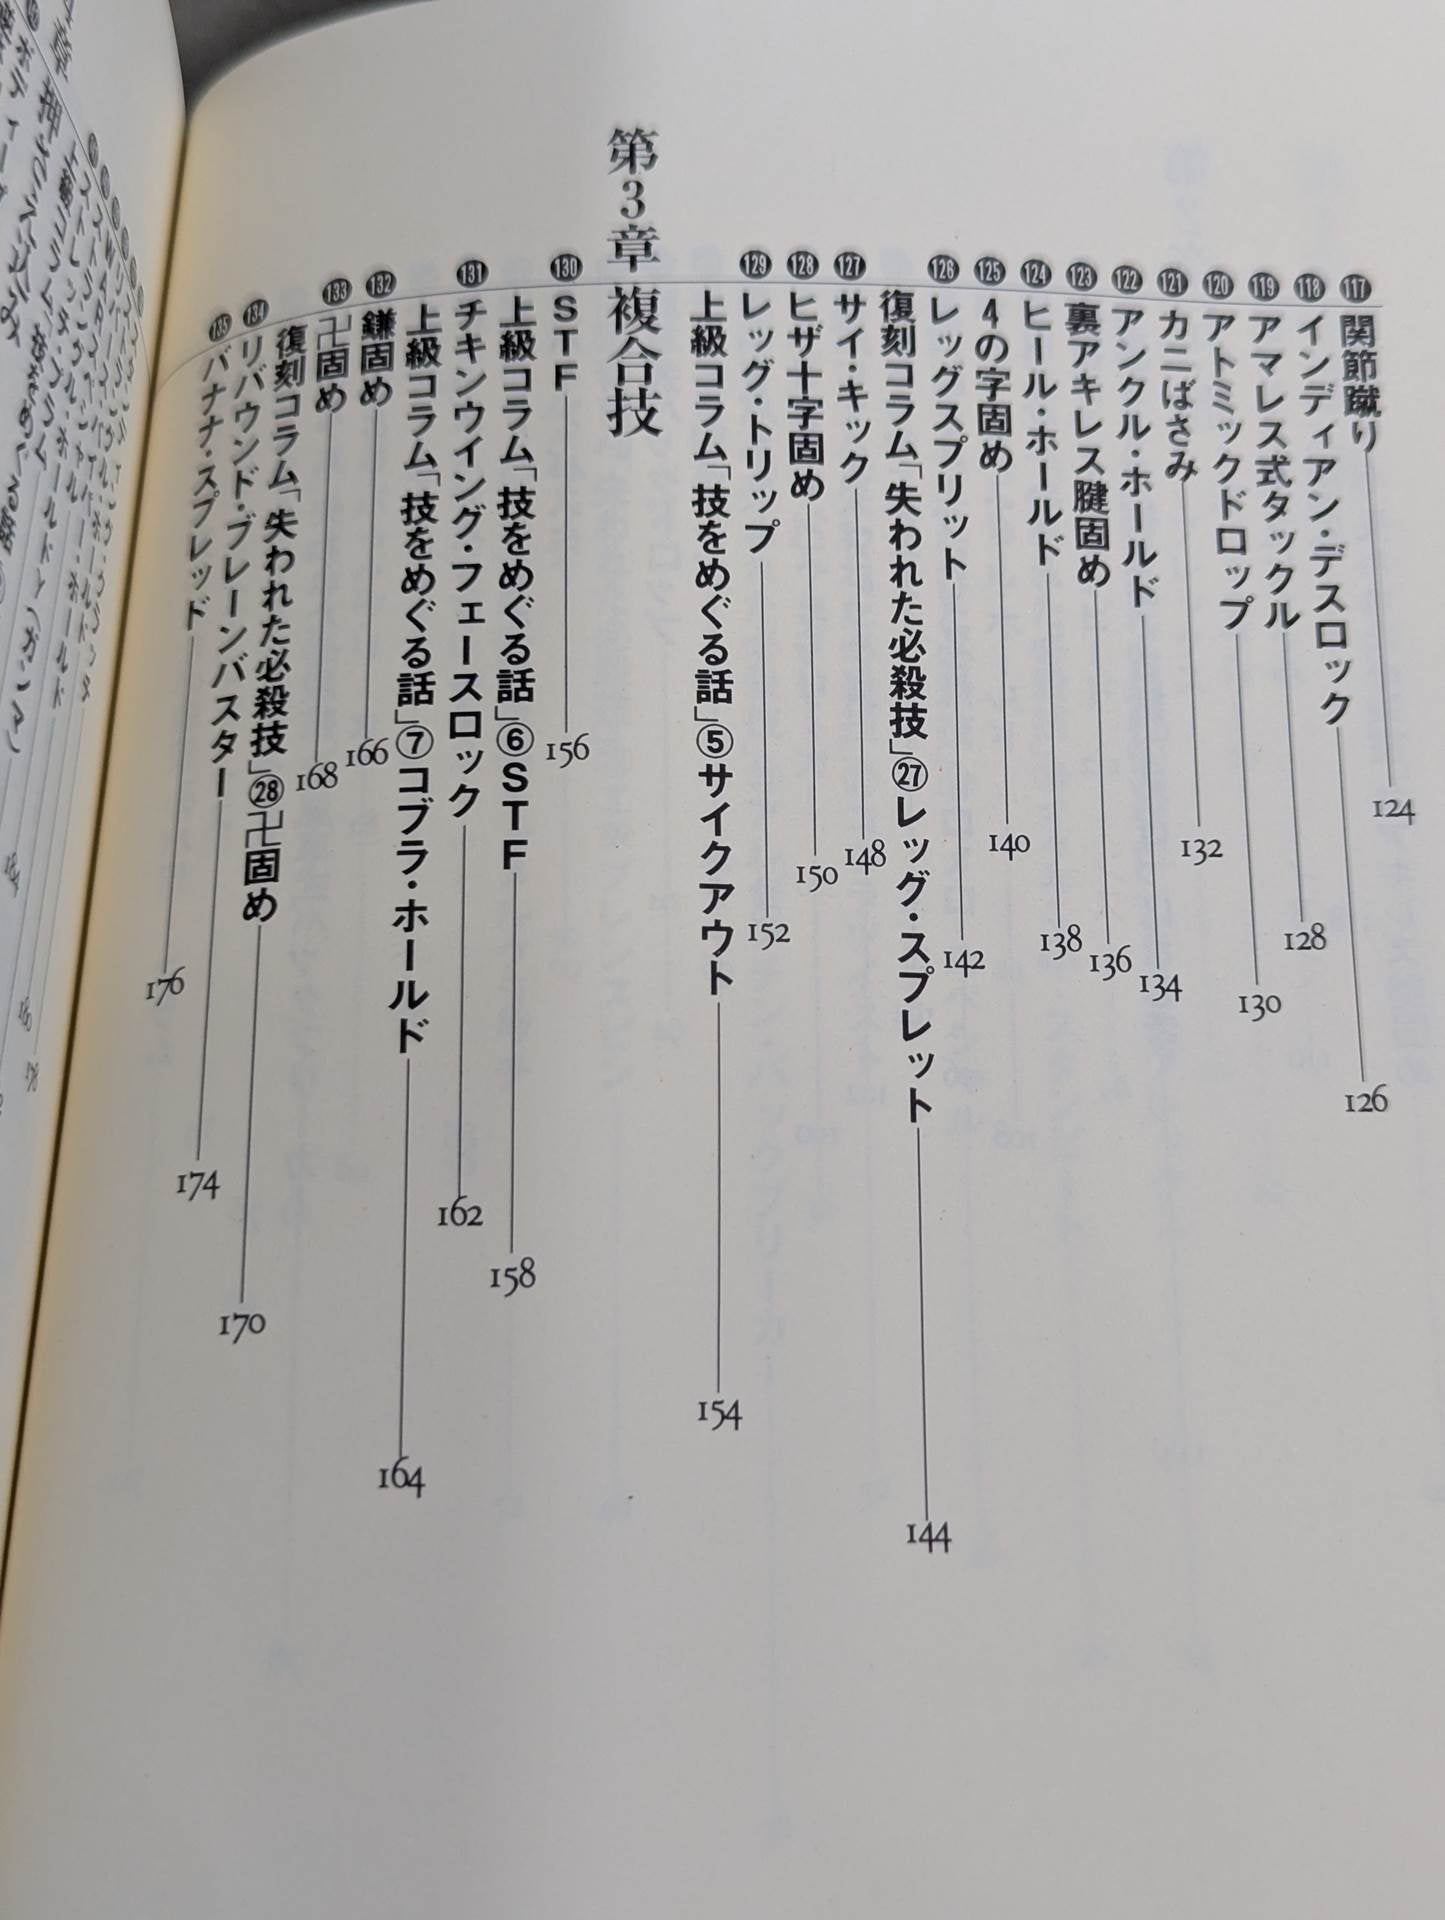 ⓱117 関節蹴り 124
118 インディアン・デスロック 126
119 アマレス式タックル 128
120 アトミックドロップ 130
121 カニばさみ 132
122 アンクル・ホールド 134
123 裏アキレス腱固め 136
124 ヒール・ホールド 138
125 4の字固め 140
126 レッグスプリット 142
復刻コラム「失われた必殺技」㉗レッグ・スプレット 144
127 サイ・キック 148
128 ヒザ十字固め 150
129 レッグ・トリップ 152
上級コラム「技をめぐる話」⑤サイクアウト 154
第3章 複合技
130 STF 156
上級コラム「技をめぐる話」⑥STF 158
131 チキンウイング・フェースロック 162
上級コラム「技をめぐる話」⑦コブラ・ホールド 164
132 鎌固め 166
133 卍固め 168
復刻コラム「失われた必殺技」㉘卍固め 170
134 リバウンド・ブレーンバスター 174
135 バナナ・スプレッド 176